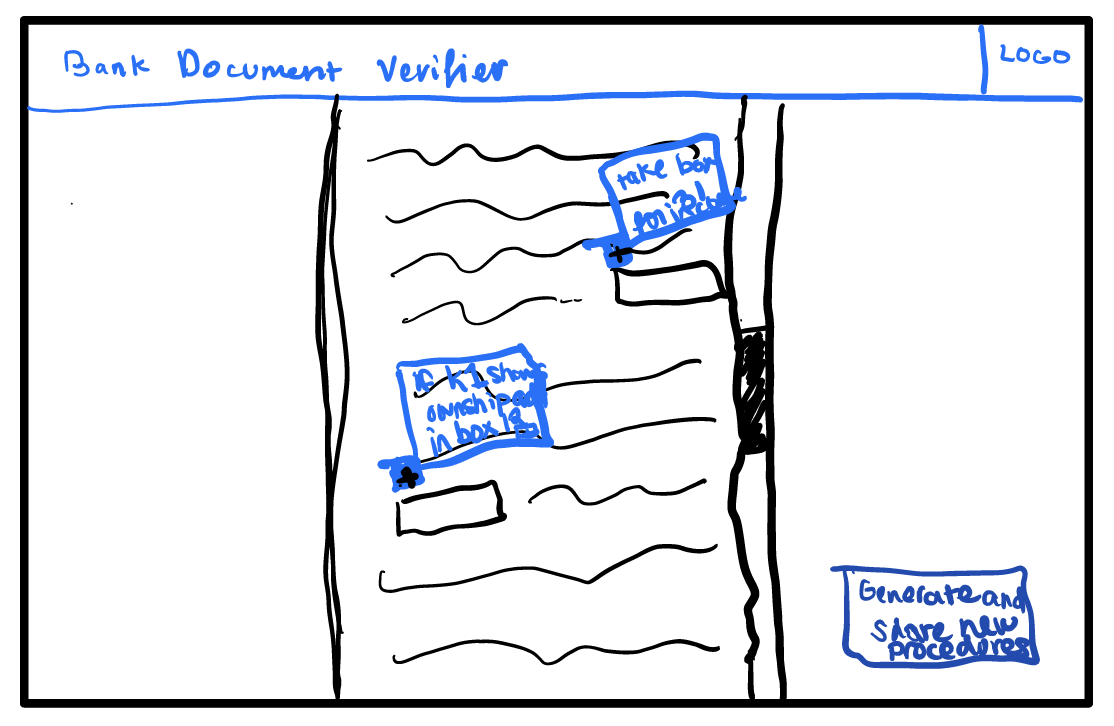 Bank Document Verifier
LOGO
take box
for
if K1 shows
ownship
in box
Generate and
share new
procedures